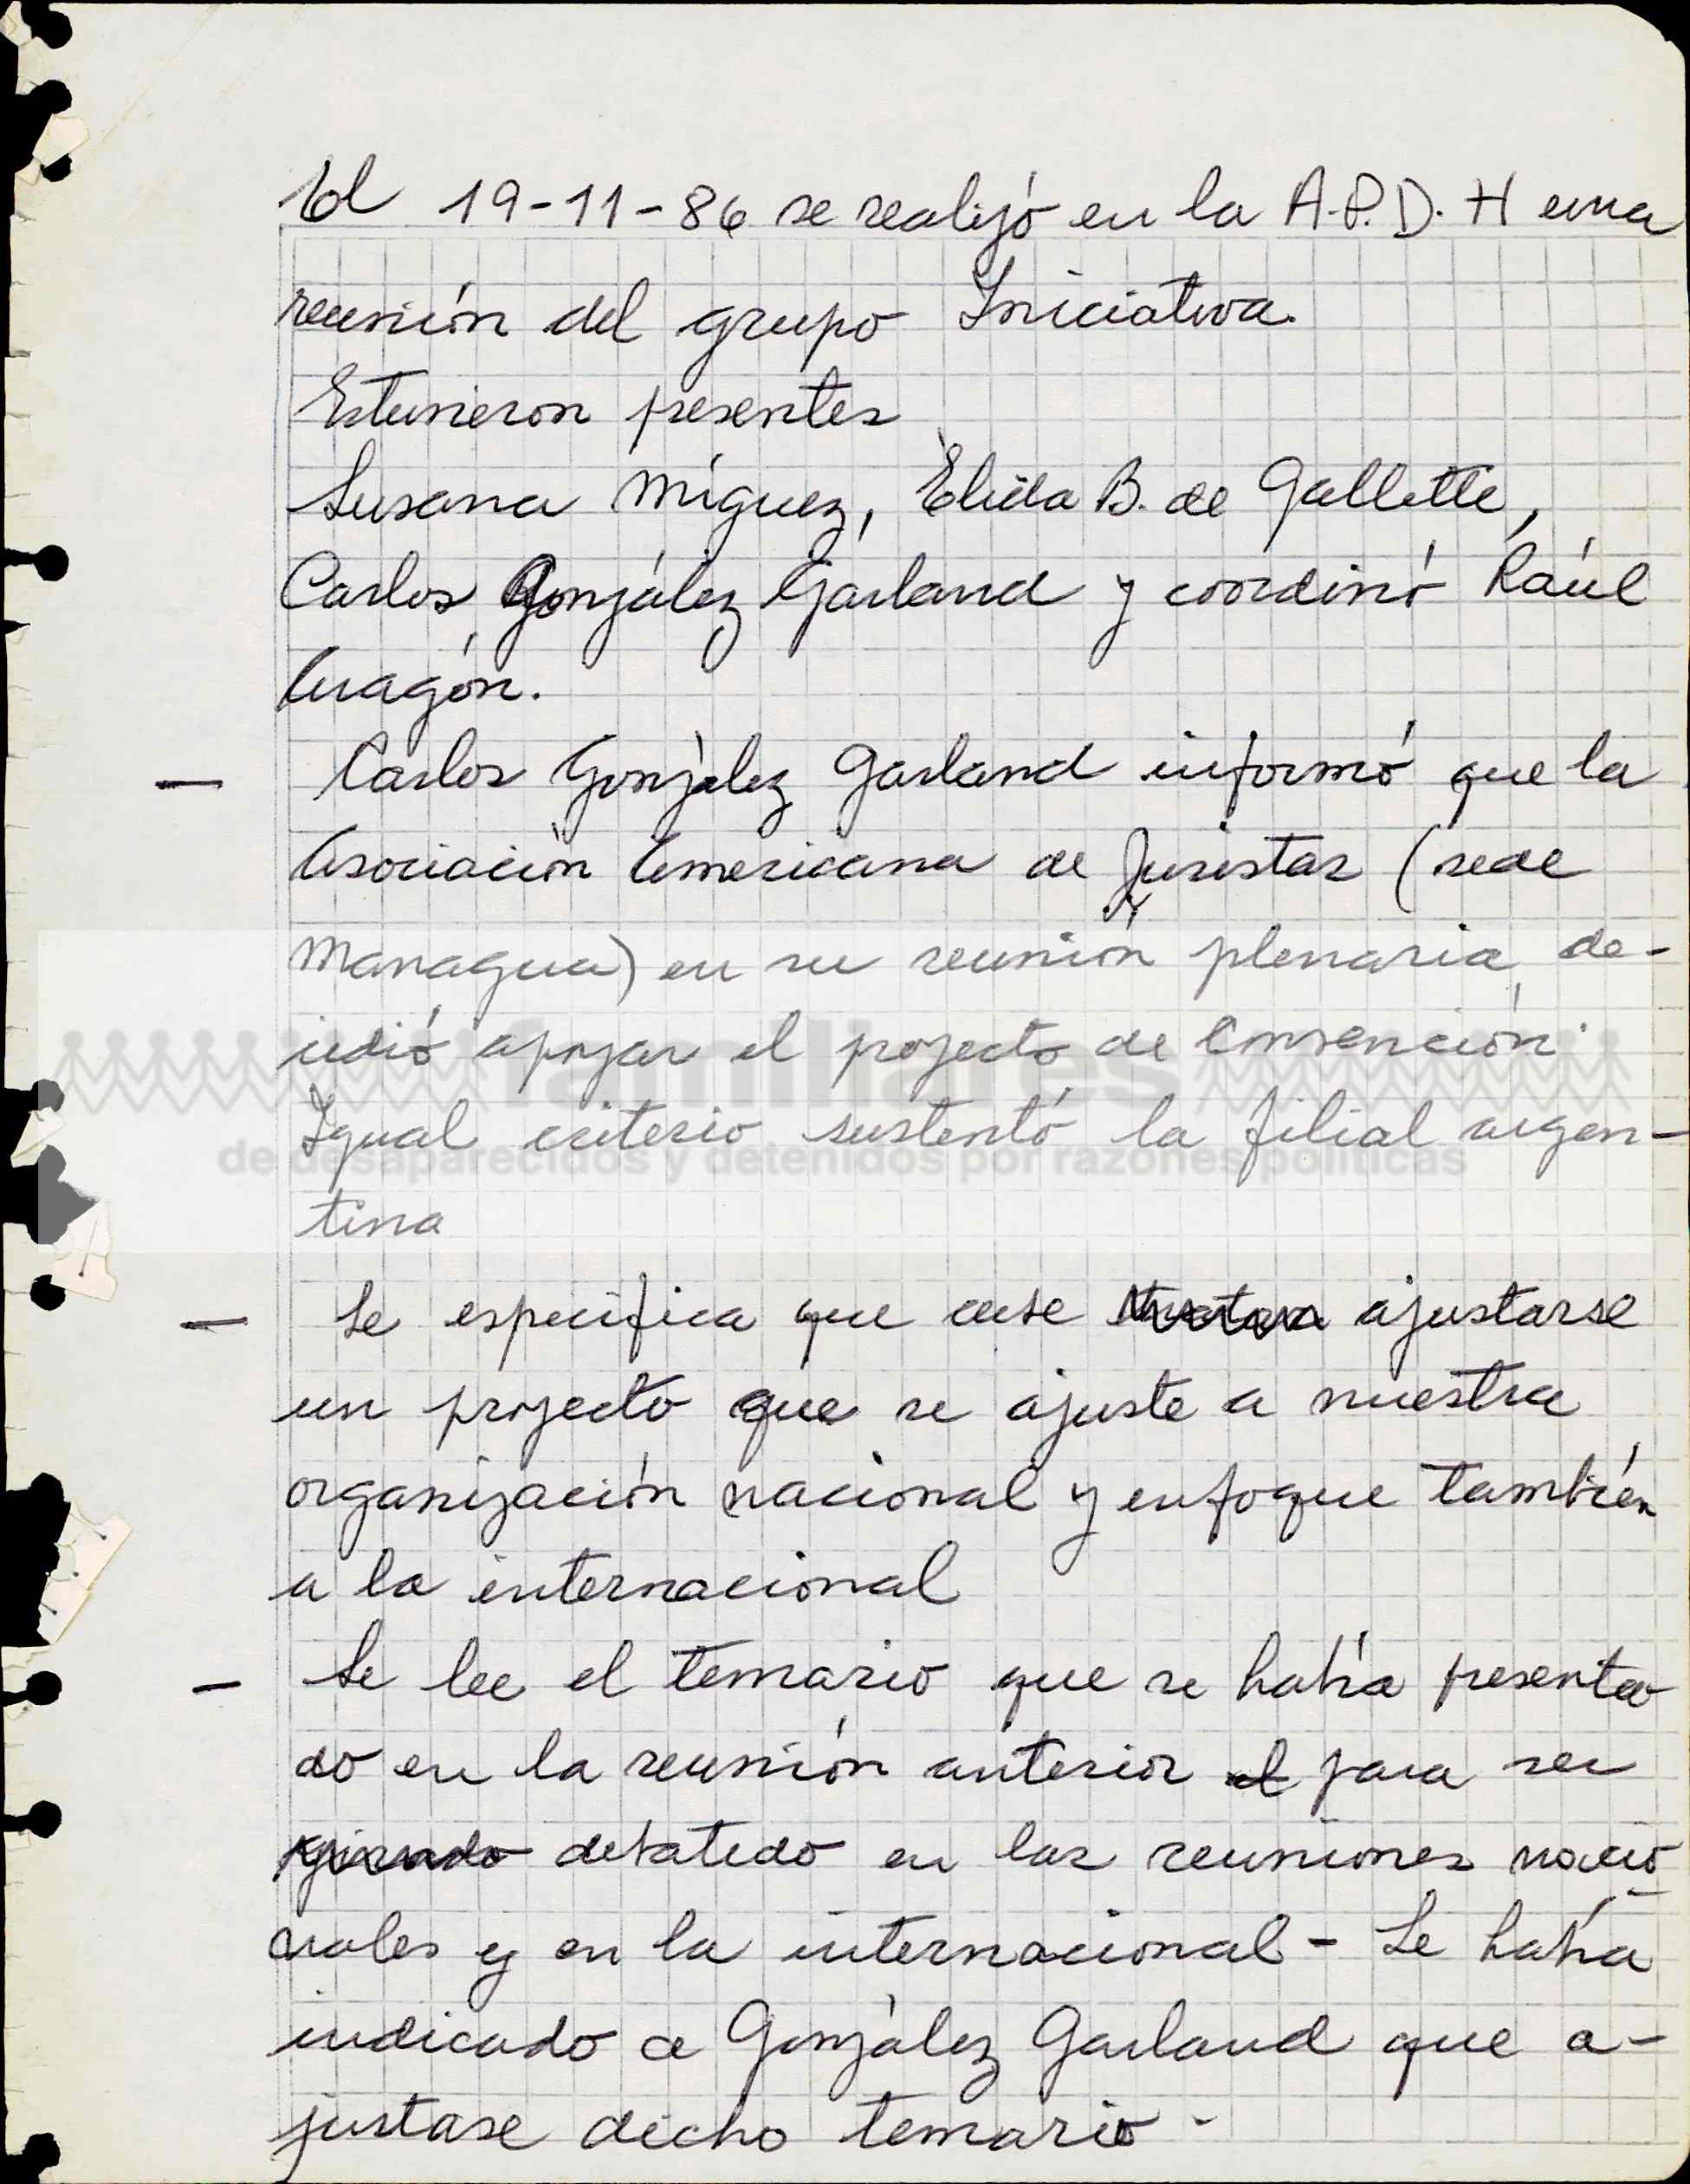 El 19-11-86 se realizó en la A.P.D.H una
reunión del grupo Iniciativa.
Estuvieron presentes
Susana Míguez, Élida B. de Galletti,
Carlos González Gárland y coordinó Raúl
Aragón.
— Carlos González Garland informó que la
Asociación Americana de Juristas (sede
Managua) en su reunión plenaria, de-
cidió apoyar el proyecto de Convención.
familiares
Igual criterio sustentó la filial argen-
de desaparecidos y detenidos por razones políticas
tina
— Se especifica que ajustarse
un proyecto que se ajuste a nuestra
organización nacional y enfoque también
a la internacional
— Se lee el temario que se había presenta
do en la reunión anterior el para ser
debatido en las reuniones nacio
nales y en la internacional - Se había
indicado a González Garland que a-
justase dicho temario -